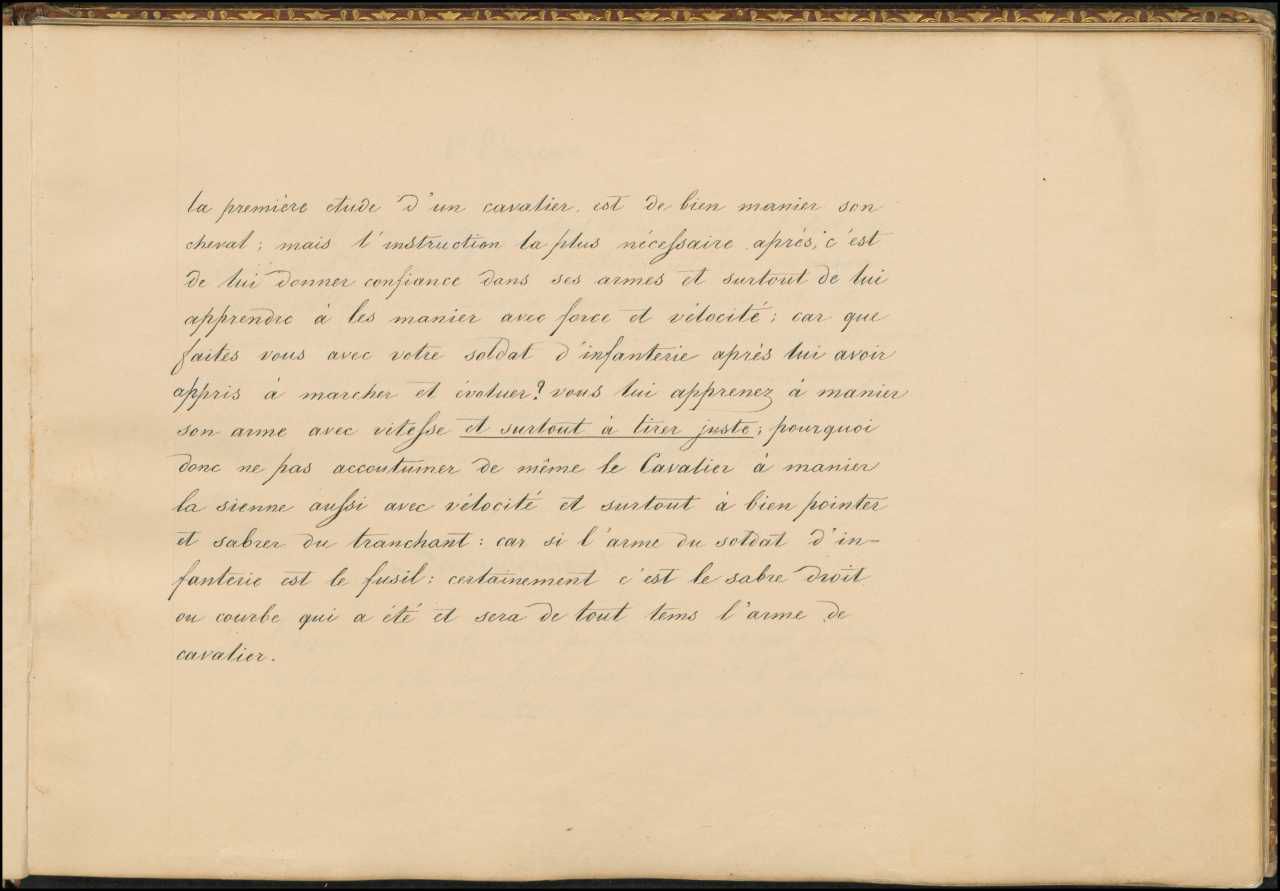 la première etude d'un cavalier est de bien manier son
cheval ; mais l'instruction la plus nécessaire après, c'est
de lui donner confiance dans ses armes et surtout de lui
apprendre à les manier avec force et vélocité ; car que
faites vous avec votre soldat d'infanterie après lui avoir
appris à marcher et évoluer ? vous lui apprenez à manier
son arme avec vitesse et surtout à tirer juste ; pourquoi
donc ne pas accoutumer de même le Cavalier à manier
la sienne aussi avec vélocité et surtout à bien pointer
et sabrer du tranchant : car si l'arme du soldat d'in-
fanterie est le fusil : certainement c'est le sabre droit
ou courbe qui a été et sera de tout tems l'arme de
cavalier.